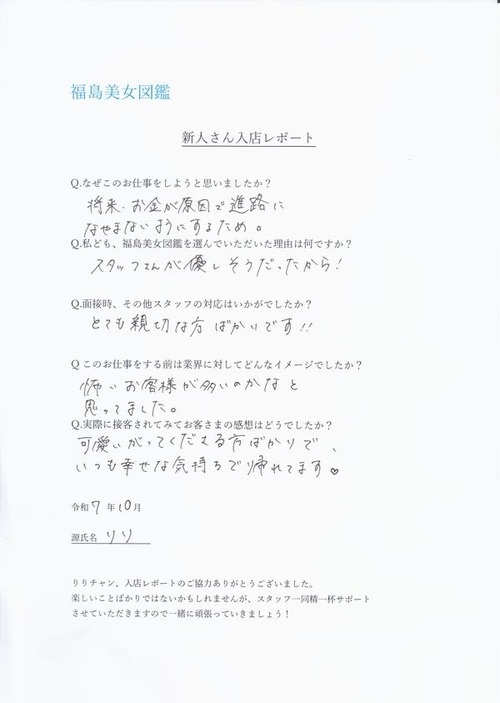 福島美女図鑑
新人さん入店レポート
Q.なぜこのお仕事をしようと思いましたか？
将来、お金が原因で進路に
なやまないようにするため。
Q.私ども、福島美女図鑑を選んでいただいた理由は何ですか？
スタッフさんが優しそうだったから！
Q.面接時、その他スタッフの対応はいかがでしたか？
とても親切な方ばかりです!!
Q このお仕事をする前は業界に対してどんなイメージでしたか？
怖いお客様が多いのかなと
思ってました。
Q.実際に接客されてみてお客さまの感想はどうでしたか？
可愛いがってくださる方ばかりで、
いつも幸せな気持ちで帰れてます♥
令和7年10月
源氏名 りり
りりチャン、入店レポートのご協力ありがとうございました。
楽しいことばかりではないかもしれませんが、スタッフ一同精一杯サポート
させていただきますので一緒に頑張っていきましょう！